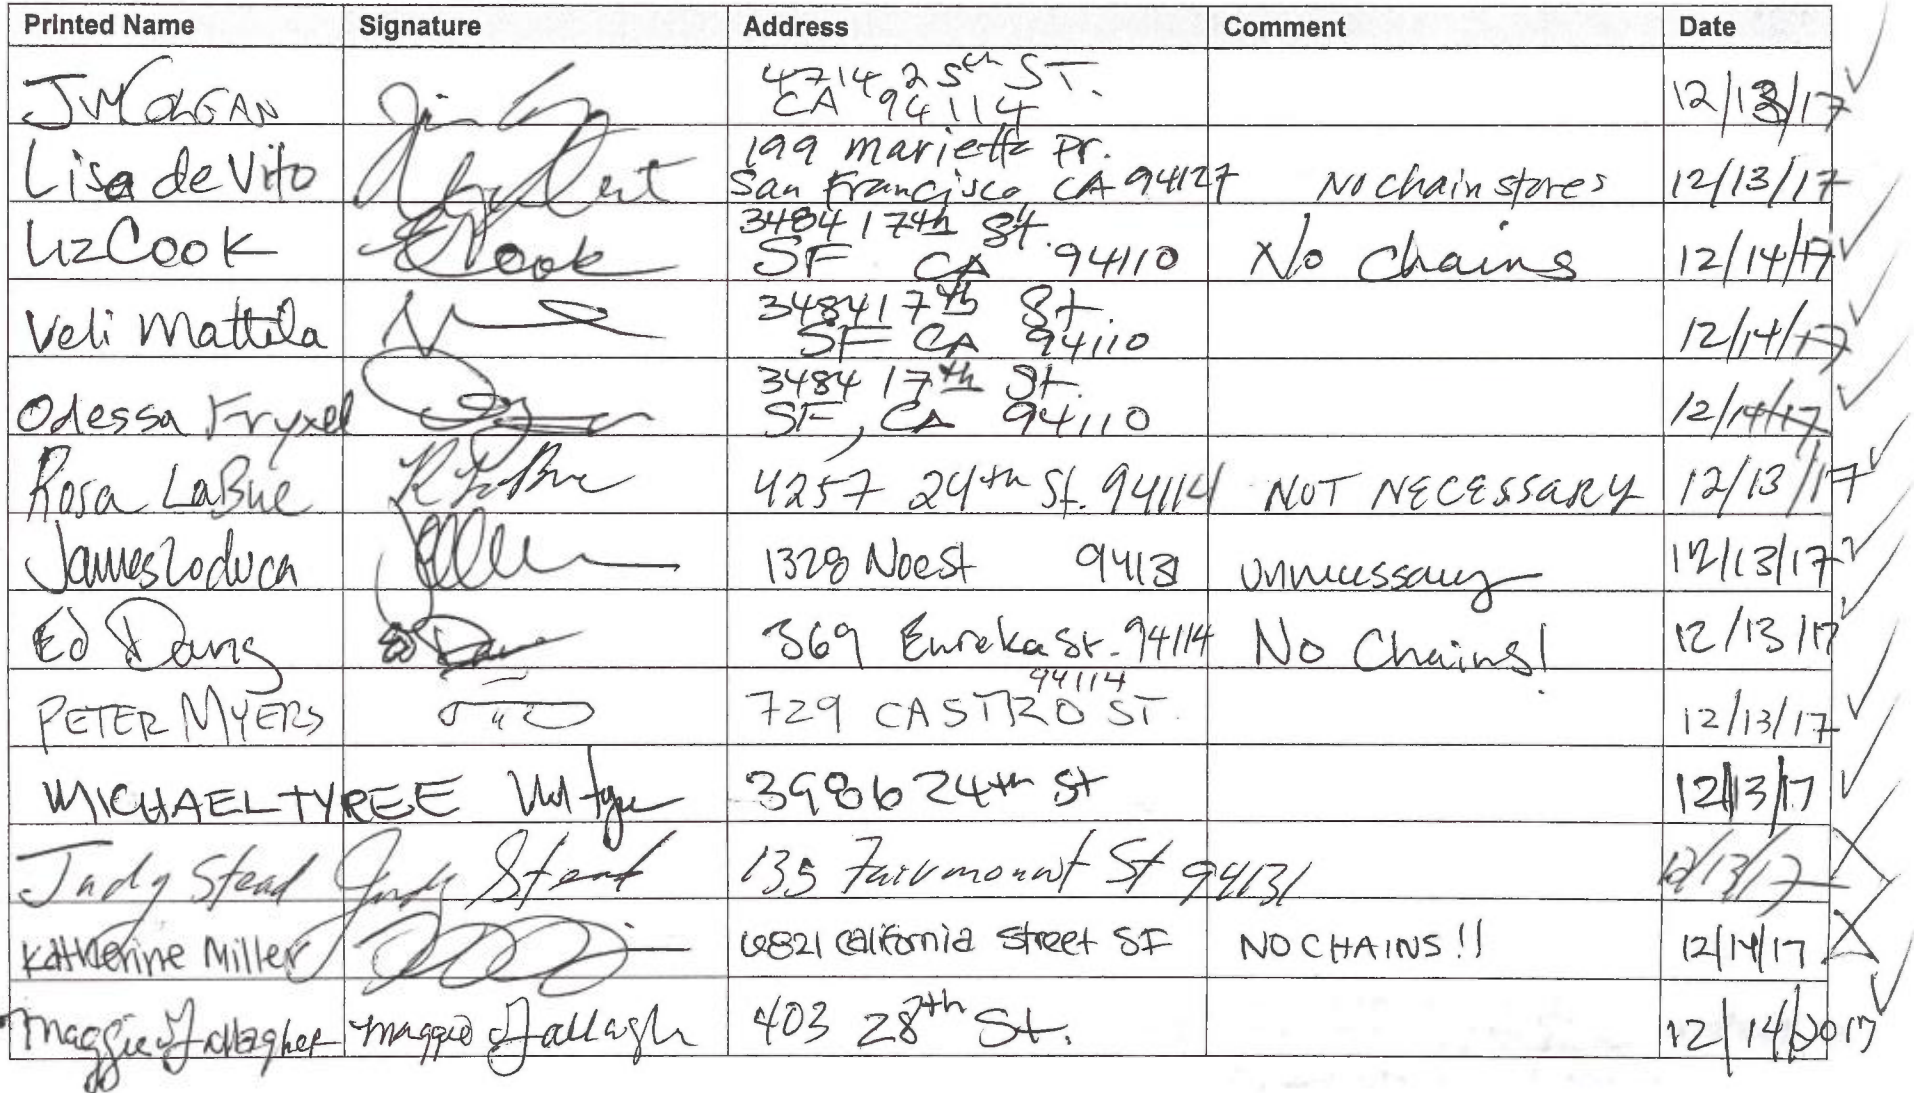 Printed Name Signature Address Comment Date
4714 25th ST.
CA 94114
JM COLGAN 12/13/17
199 Marietta Dr.
Lisa de Vito San Francisco, CA 94127 No chain stores 12/13/17
3484 17th St.
Liz Cook Cook SF CA 94110 No Chains 12/14/17
3484 17th St.
Veli Mattila SF CA 94110 12/14/17
3484 17th St.
Odessa Fryxel SF, CA 94110 12/14/17
Rosa LaBue R LaBue 4257 24th St. 94114 NOT NECESSARY 12/13/17
James Loduca 1328 Noe St 94131 unnecessary 12/13/17
Ed Dang Ed 369 Eureka St. 94114 No Chains! 12/13/17
94114
PETER MYERS 729 CASTRO ST. 12/13/17
MICHAEL TYREE 3986 24th St 12/13/17
Judy Stead Judy Stead 135 Fairmount St 94131 12/13/17
Katherine Miller 6821 California Street SF NO CHAINS!! 12/14/17
Maggie Gallagher Maggie Gallagh 403 28th St. 12/14/2017